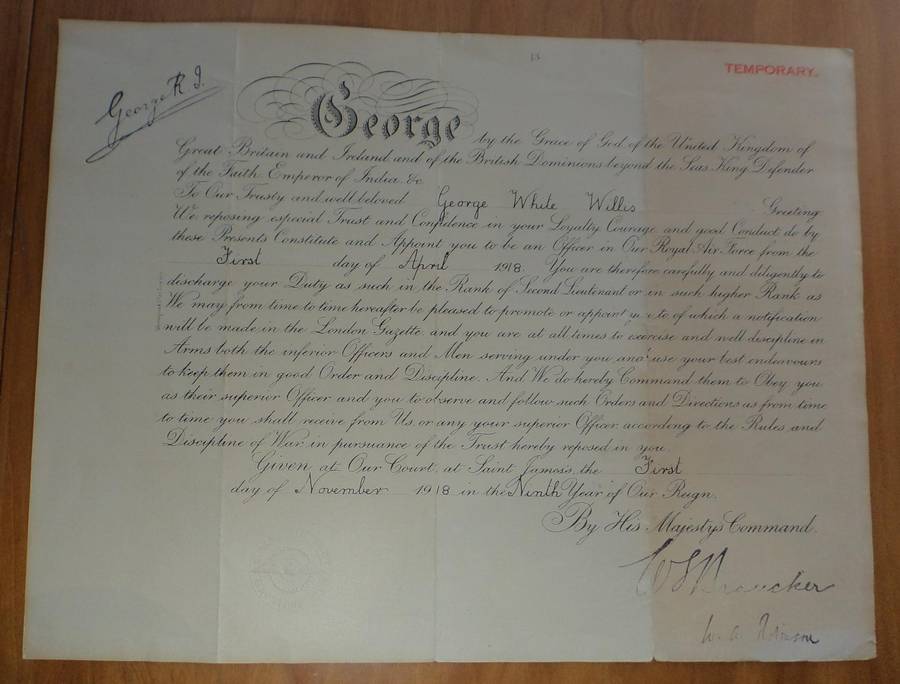 TEMPORARY.
George R. I.
George by the Grace of God, of the United Kingdom of
Great Britain and Ireland and of the British Dominions beyond the Seas King Defender
of the Faith Emperor of India. &c
To Our Trusty and well beloved George White Willis Greeting
We reposing especial Trust and Confidence in your Loyalty Courage and good Conduct do by
these Presents Constitute and Appoint you to be an Officer in Our Royal Air Force from the
First day of April 1918. You are therefore carefully and diligently to
discharge your Duty as such in the Rank of Second Lieutenant or in such higher Rank as
We may from time to time hereafter be pleased to promote or appoint you to of which a notification
will be made in the London Gazette and you are at all times to exercise and well discipline in
Arms both the inferior Officers and Men serving under you and use your best endeavours
to keep them in good Order and Discipline. And We do hereby Command them to Obey you
as their superior Officer and you to observe and follow such Orders and Directions as from time
to time you shall receive from Us, or any your superior Officer according to the Rules and
Discipline of War in pursuance of the Trust hereby reposed in you.
Given at Our Court, at Saint James's, the First
day of November 1918 in the Ninth Year of Our Reign.
By His Majesty's Command.
W. A. Robinson